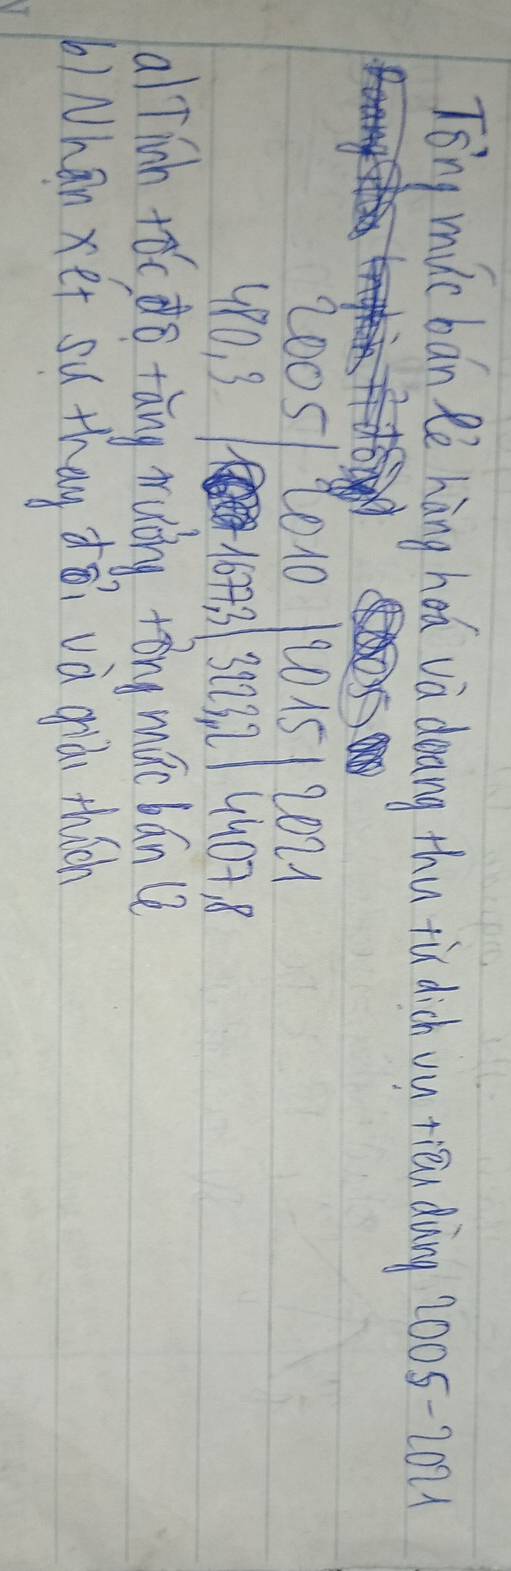 Tổng mức bán lẻ hàng hoá và doang thu từ dịch vụ tiêu dùng 2005-2021
2005 | 2010 | 2015 | 2021
480,3 | 1677,3 | 3223,2 | 4407,8
a) Tính tốc độ tăng trưởng tổng mức bán lẻ
b) Nhận xét sự thay đổi và giải thích